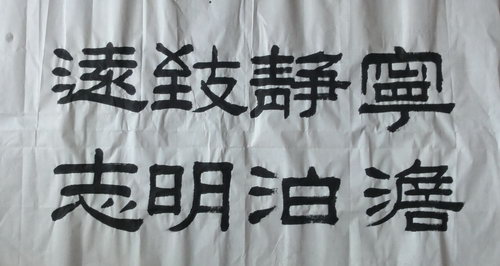 寧靜致遠
澹泊明志